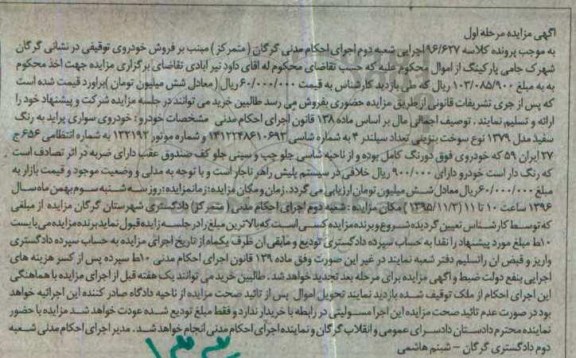 آگهی مزایده مرحله اول
به موجب پرونده کلاسه ۹۶/۶۲۷ اجرایی شعبه دوم اجرای احکام مدنی گرگان (متمرکز) مبنی بر فروش خودروی توقیفی در نشانی گرگان
شهرک جامی پارکینگ از اموال محکوم علیه که حسب تقاضای محکوم له آقای داود نیر آبادی تقاضای برگزاری مزایده جهت اخذ محکوم
به به مبلغ ۱۰۳/۰۸۵/۹۰۰ ریال که طی بازدید کارشناس به قیمت ۶۰/۰۰۰/۰۰۰ ریال (معادل شش میلیون تومان) براورد قیمت شده است
که پس از جری تشریفات قانونی از طریق مزایده حضوری بفروش می رسد طالبین خرید می توانند در جلسه مزایده شرکت و پیشنهاد خود را
ارائه و تسلیم نمایند. توصیف اجمالی مال بر اساس ماده ۱۳۸ قانون اجرای احکام مدنی مشخصات خودرو: خودروی سواری پراید به رنگ
سفید مدل ۱۳۷۹ نوع سوخت بنزینی تعداد سیلندر ۴ به شماره شاسی ۱۴۱۲۲۴۸۶۱۰۶۹۳ و شماره موتور ۱۳۲۱۹۲ به شماره انتظامی ۶۵۶ ج
۲۷ ایران ۵۹ که خودروی فوق دورنگ کامل بوده و از ناحیه شاسی جلو چپ و سینی جلو کف صندوق عقب دارای ضربه در اثر تصادف است
که رنگ دار است خودرو دارای ۹۰۰/۰۰۰ ریال خلافی در سیستم پلیس راهور ناجا است و با توجه به مدلی و وضعیت موجود و قیمت بازار به
مبلغ ۶۰/۰۰۰/۰۰۰ ریال معادل شش میلیون تومان ارزیابی می گردد. زمان و مکان مزایده: زمان مزایده: روز سه شنبه سوم بهمن ماه سال
۱۳۹۶ ساعت ۱۰ تا ۱۱ (۱۳۹۵/۱۱/۳) مکان مزایده: شعبه دوم اجرای احکام مدنی (متمرکز) دادگستری شهرستان گرگان مزایده از مبلغی
که توسط کارشناس تعیین گردیده شروع و برنده مزایده کسی است که بالاترین مبلغ را در جلسه مزایده قبول نماید برنده مزایده می بایست
۱۰ط مبلغ مورد پیشنهاد را نقدا به حساب سپرده دادگستری تودیع و مابقی آن ظرف یکماه از تاریخ اجرای مزایده به حساب سپرده دادگستری
واریز و قبض آن را تسلیم دفتر شعبه نمایند در غیر این صورت وفق ماده ۱۲۹ قانون اجرای احکام مدنی ۱۰ط سپرده پس از کسر هزینه های
اجرایی بنفع دولت ضبط و آگهی مزایده برای مرحله بعد تجدید خواهد شد. طالبین خرید می توانند یک هفته قبل از اجرای مزایده با هماهنگی
این اجرای احکام از ملک توقیف شده بازدید نمایند تحویل اموال پس از تائید صحت مزایده از ناحیه دادگاه صادر کننده این اجرائیه خواهد
بود در صورت عدم تائید صحت مزایده این اجرا مسولیتی در رابطه با خریدار ندارد و فقط مبلغ تودیع شده عودت خواهد شد مزایده با حضور
نماینده محترم دادستان دادسرای عمومی و انقلاب گرگان و نماینده اجرای احکام مدنی انجام خواهد شد. مدیر اجرای احکام مدنی شعبه
دوم دادگستری گرگان - شبنم هاشمی